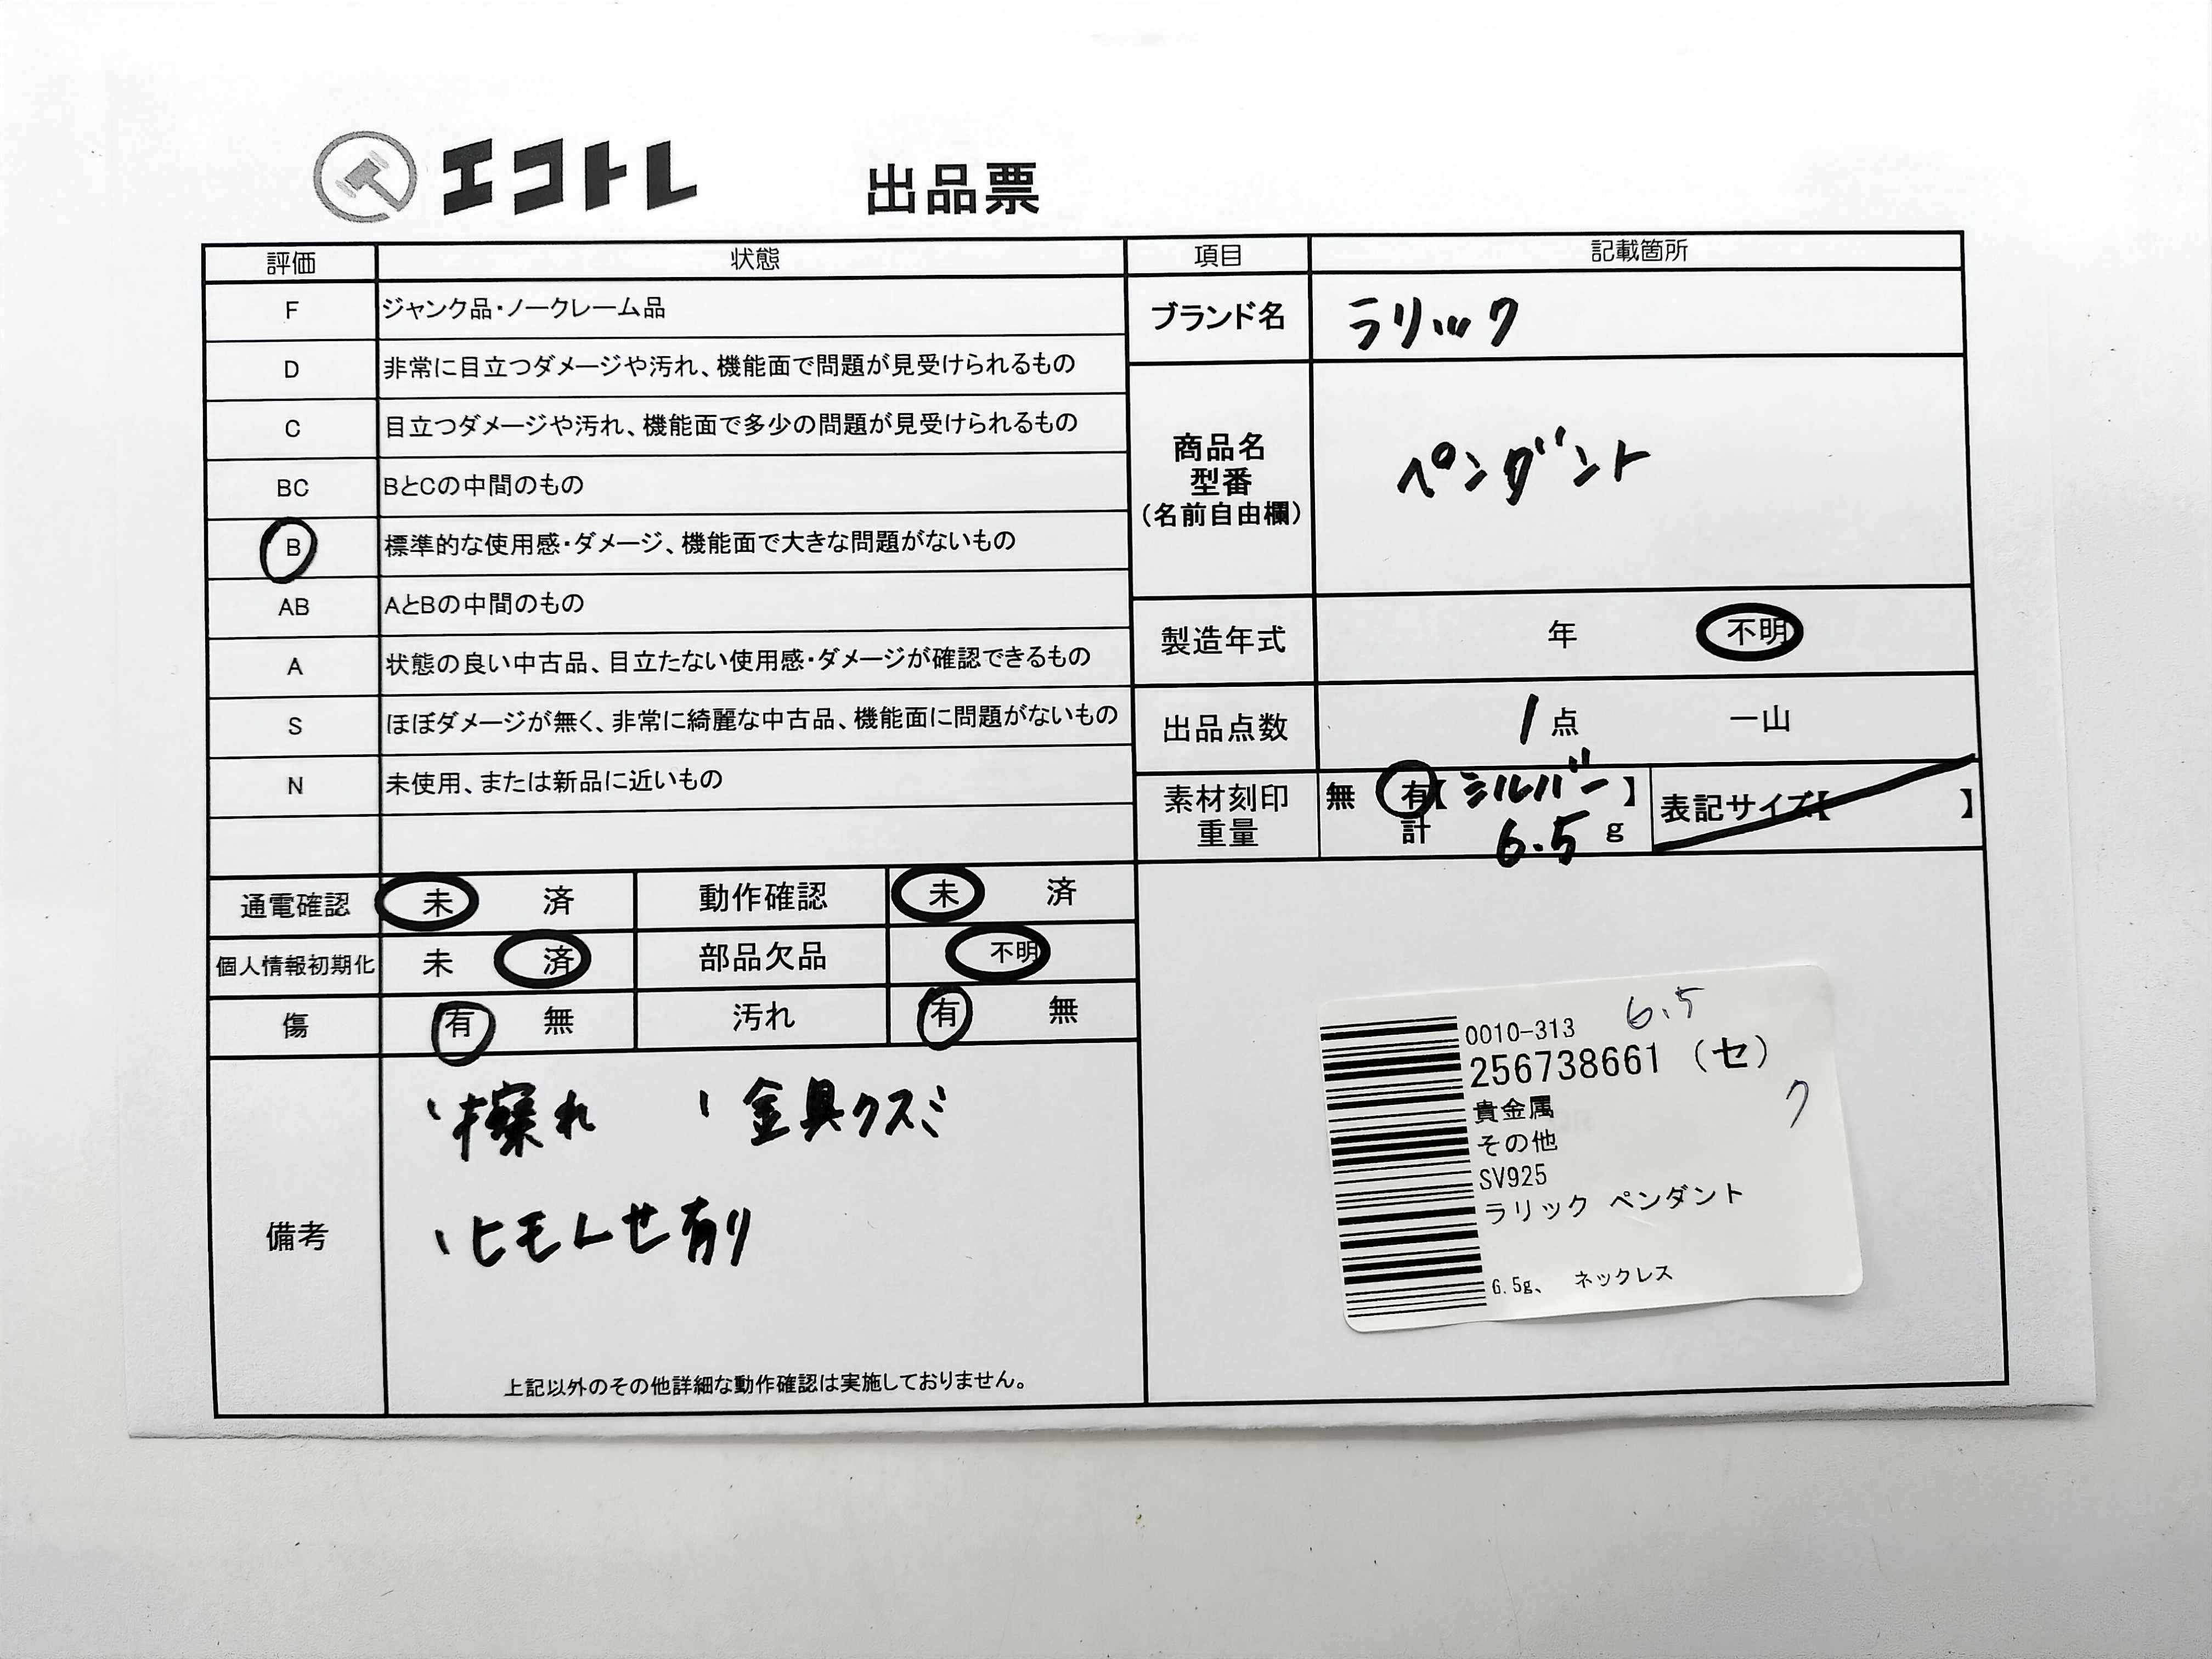 エコトレ 出品票
評価 状態
F ジャンク品・ノークレーム品
D 非常に目立つダメージや汚れ、機能面で問題が見受けられるもの
C 目立つダメージや汚れ、機能面で多少の問題が見受けられるもの
BC BとCの中間のもの
B 標準的な使用感・ダメージ、機能面で大きな問題がないもの
AB AとBの中間のもの
A 状態の良い中古品、目立たない使用感・ダメージが確認できるもの
S ほぼダメージが無く、非常に綺麗な中古品、機能面に問題がないもの
N 未使用、または新品に近いもの
通電確認 未 済 動作確認 未 済
個人情報初期化 未 済 部品欠品 不明
傷 有 無 汚れ 有 無
備考
、擦れ 、金具クスミ
、ヒモレせ有り
上記以外のその他詳細な動作確認は実施しておりません。
項目 記載箇所
ブランド名 ラリック
商品名
型番
(名前自由欄)
ペンダント
製造年式 年 不明
出品点数 1点 一山
素材刻印 無 有【シルバー】 表記サイズ【 】
重量 計 6.5 g
6.5
0010-313
256738661 (セ)
ク
貴金属
その他
SV925
ラリック ペンダント
6.5g、 ネックレス